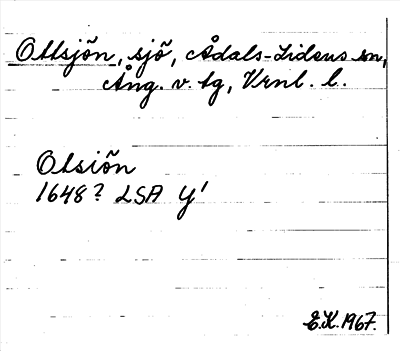 Ottsjön, sjö, Ådals-Lidens sn,
Ång. v. tg, Vrnl. l.
Otsiön
1648? LSA Y'
E.K. 1967.